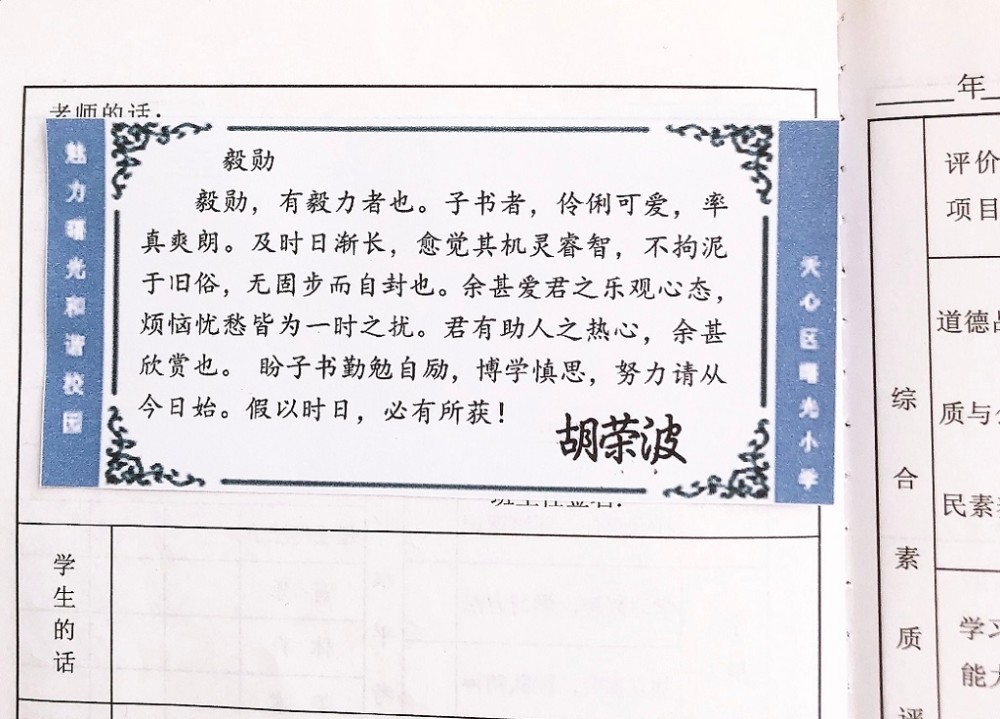 老师的话：
魅力曙光和谐校园
毅勋
毅勋，有毅力者也。子书者，伶俐可爱，率
真爽朗。及时日渐长，愈觉其机灵睿智，不拘泥
于旧俗，无固步而自封也。余甚爱君之乐观心态，
烦恼忧愁皆为一时之扰。君有助人之热心，余甚
欣赏也。 盼子书勤勉自励，博学慎思，努力请从
今日始。假以时日，必有所获！
胡荣波
天心区曙光小学
班主任签名：
学生的话
年
综合素质评
评价
项目
道德品
质与公
民素养
学习
能力